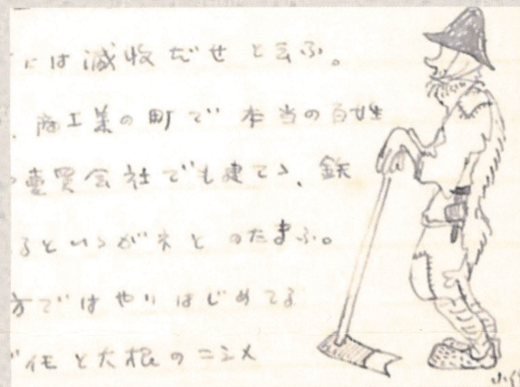 には減収だせと云ふ。
、商工業の町で本当の百姓
壷買会社でも建てゝ、鉄
るといゝがネとのたまふ。
方ではやりはじめてる
イモと大根のニシメ